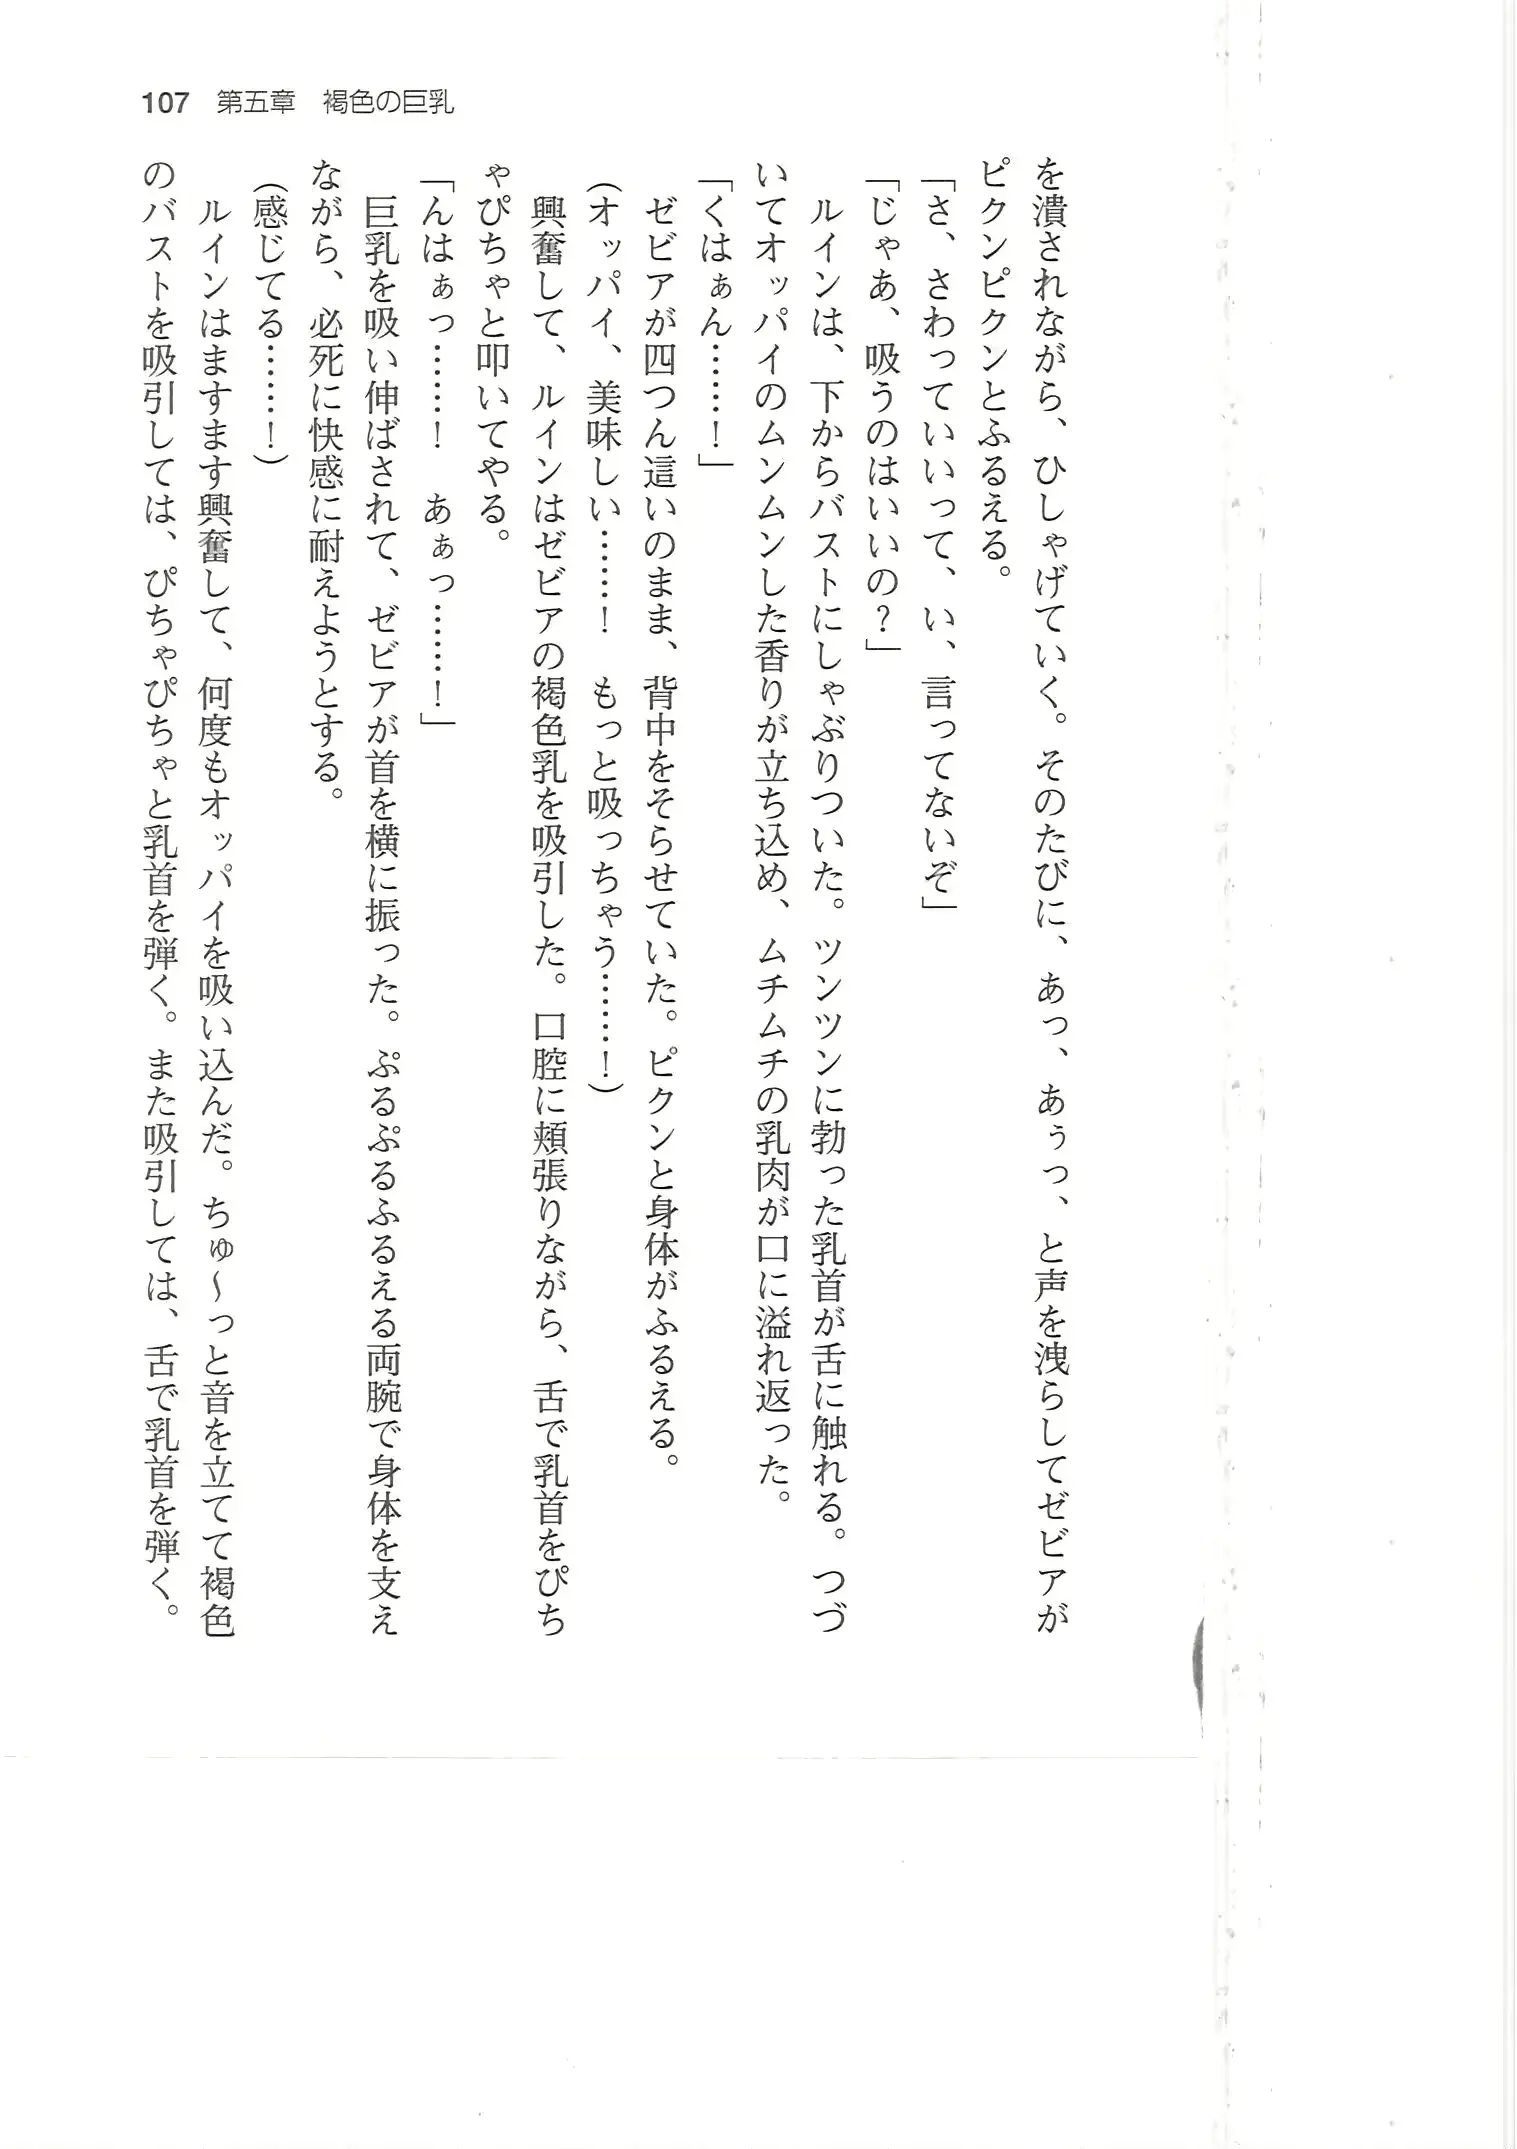 107 第五章 褐色の巨乳
を潰されながら、ひしゃげていく。そのたびに、あっ、あぅっ、と声を洩らしてゼビアが
ピクンピクンとふるえる。
「さ、さわっていいって、い、言ってないぞ」
「じゃあ、吸うのはいいの？」
ルインは、下からバストにしゃぶりついた。ツンツンに勃った乳首が舌に触れる。つづ
いてオッパイのムンムンした香りが立ち込め、ムチムチの乳肉が口に溢れ返った。
「くはぁん……！」
ゼビアが四つん這いのまま、背中をそらせていた。ピクンと身体がふるえる。
（オッパイ、美味しい……！　もっと吸っちゃう……！）
興奮して、ルインはゼビアの褐色乳を吸引した。口腔に頬張りながら、舌で乳首をぴち
ゃぴちゃと叩いてやる。
「んはぁっ……！　あぁっ……！」
巨乳を吸い伸ばされて、ゼビアが首を横に振った。ぷるぷるふるえる両腕で身体を支え
ながら、必死に快感に耐えようとする。
（感じてる……！）
ルインはますます興奮して、何度もオッパイを吸い込んだ。ちゅ〜っと音を立てて褐色
のバストを吸引しては、ぴちゃぴちゃと乳首を弾く。また吸引しては、舌で乳首を弾く。